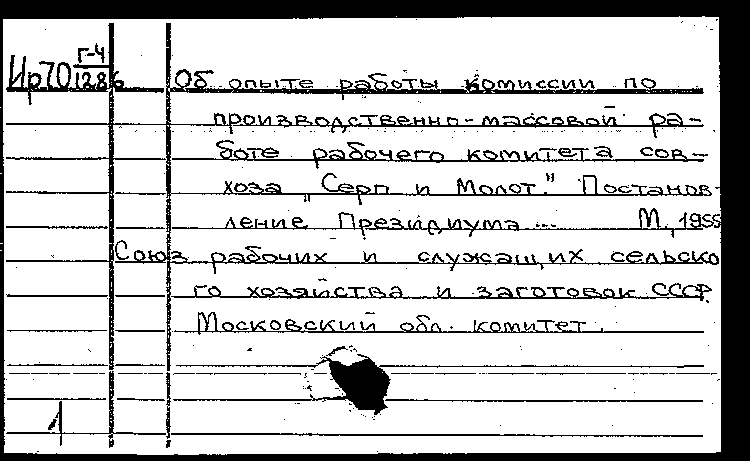 Ир70 г-4
1286
Об опыте работы комиссии по
производственно-массовой ра-
боте рабочего комитета сов-
хоза „Серп и Молот." Постанов-
ление Президиума... М., 1955
Союз рабочих и служащих сельско
го хозяйства и заготовок СССР.
Московский обл. комитет.
1